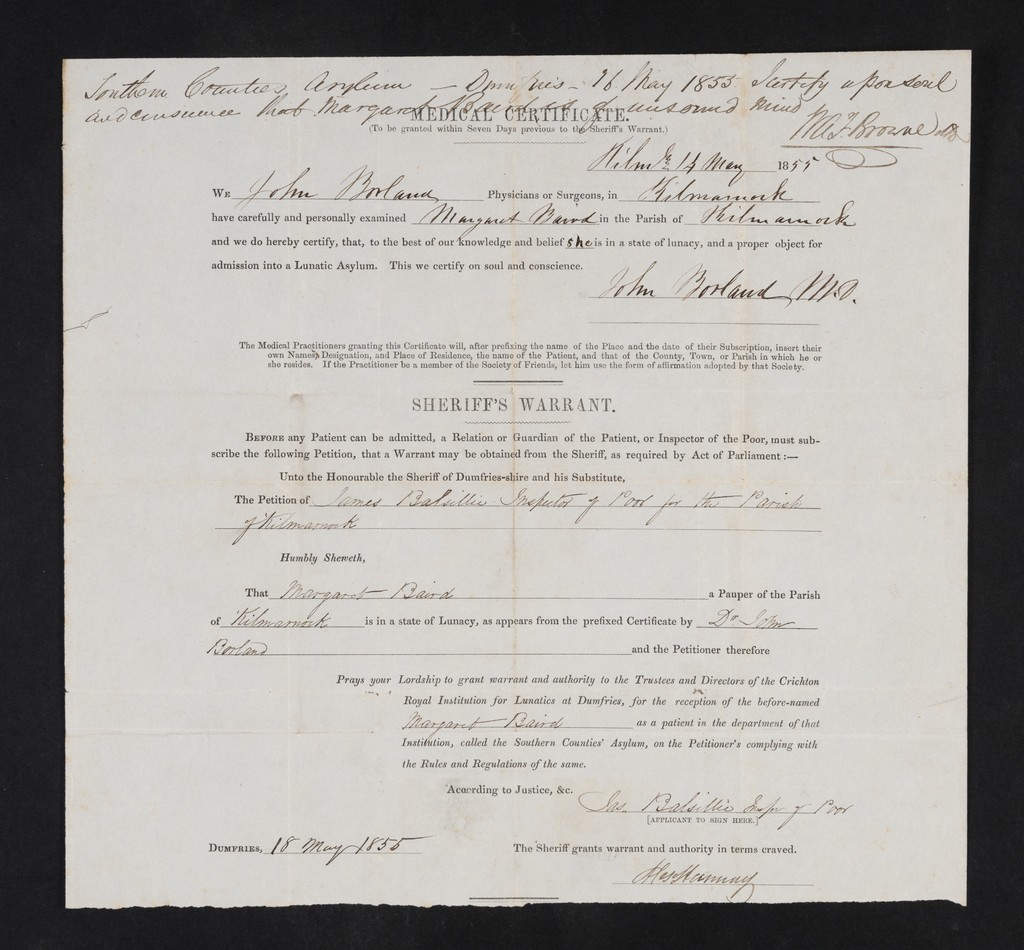 Southern Counties Asylum – Dumfries – 16 May 1855 I certify upon soul
and conscience that Margaret Baird is of unsound mind
MEDICAL CERTIFICATE.
W A F Browne
(To be granted within Seven Days previous to the Sheriff's Warrant.)
14 May 1855
WE John Borland Physicians or Surgeons, in Kilmarnock
have carefully and personally examined Margaret Baird in the Parish of Kilmarnock
and we do hereby certify, that, to the best of our knowledge and belief she is in a state of lunacy, and a proper object for
admission into a Lunatic Asylum. This we certify on soul and conscience.
John Borland M.D.
The Medical Practitioners granting this Certificate will, after prefixing the name of the Place and the date of their Subscription, insert their
own Names, Designation, and Place of Residence, the name of the Patient, and that of the County, Town, or Parish in which he or
she resides. If the Practitioner be a member of the Society of Friends, let him use the form of affirmation adopted by that Society.
SHERIFF'S WARRANT.
BEFORE any Patient can be admitted, a Relation or Guardian of the Patient, or Inspector of the Poor, must sub-
scribe the following Petition, that a Warrant may be obtained from the Sheriff, as required by Act of Parliament:—
Unto the Honourable the Sheriff of Dumfries-shire and his Substitute,
The Petition of James Balsillie Inspector of Poor for the Parish
of Kilmarnock
Humbly Sheweth,
That Margaret Baird a Pauper of the Parish
of Kilmarnock is in a state of Lunacy, as appears from the prefixed Certificate by Dr John
Borland and the Petitioner therefore
Prays your Lordship to grant warrant and authority to the Trustees and Directors of the Crichton
Royal Institution for Lunatics at Dumfries, for the reception of the before-named
Margaret Baird as a patient in the department of that
Institution, called the Southern Counties' Asylum, on the Petitioner's complying with
the Rules and Regulations of the same.
According to Justice, &c.
Jas. Balsillie Inspr of Poor
[APPLICANT TO SIGN HERE.]
DUMFRIES, 18 May 1855 The Sheriff grants warrant and authority in terms craved.